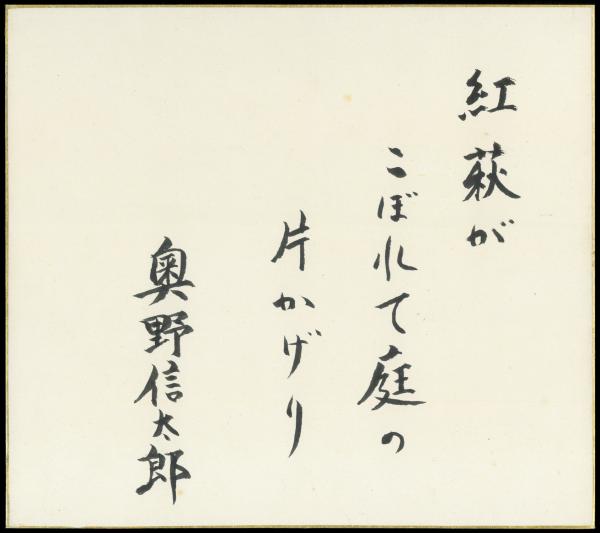 紅萩が
こぼれて庭の
片かげり
奥野信太郎